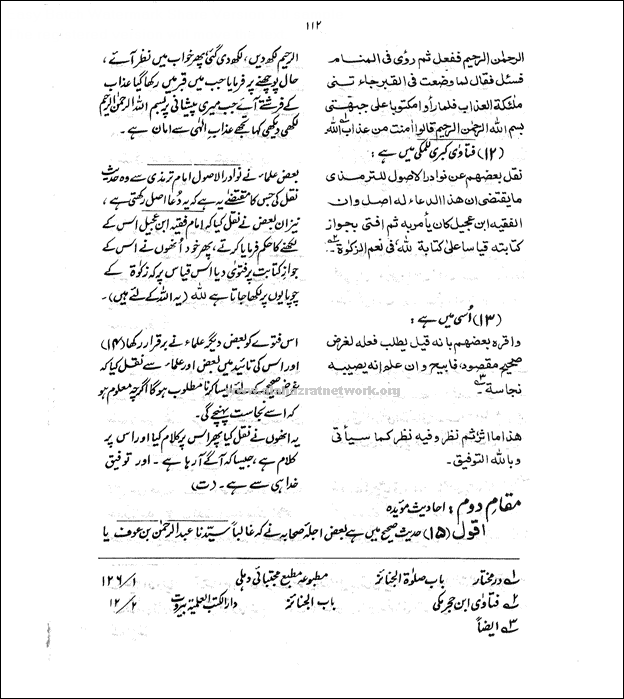 ۱۱۲
الرحمٰن الرحیم ففعل ثم رؤی فی المنام
فسئل فقال لما وضعت فی القبر جاء تنی
ملٰئکة العذاب فلما رأوا مکتوبا علی جبهتی
بسم اللہ الرحمٰن الرحیم قالوا أمنت من عذاب اللہ ؎۱
الرحیم لکھ دیں، لکھ دی گئی پھر خواب میں نظر آئے،
حال پوچھنے پر فرمایا جب میں قبر میں رکھا گیا عذاب
کے فرشتے آئے جب میری پیشانی پر بسم اللہ الرحمٰن الرحیم
لکھی دیکھی کہا تجھے عذابِ الٰہی سے امان ہے۔
(۱۲) فتاوٰی کبری للمکی میں ہے :
نقل بعضهم عن نوادر الاصول للترمذی
مایقتضی ان هذا الدعاء له اصل وان
الفقیه ابن عجیل کان یأمر به ثم افتی بجواز
کتابته قیاسا علی کتابة للہ فی نعم الزکوٰة ؎۲
بعض علماء نے نوادر الاصول امام ترمذی سے وہ حدیث
نقل کی جس کا مقتضٰے یہ ہے کہ یہ دُعا اصل رکھتی ہے،
نیز ان بعض نے نقل کیا کہ امام فقیہ ابن عجیل اس کے
لکھنے کا حکم فرمایا کرتے، پھر خود اُنھوں نے اس کے
جوازِ کتابت پر فتوٰی دیا اس قیاس پر کہ زکوٰة کے
چوپایوں پر لکھا جاتا ہے للہ (یہ اللہ کے لئے ہیں)۔
(۱۳) اُسی میں ہے :
واقرہ بعضهم بانه قیل یطلب فعله لغرض
صحیح مقصود، فابیح وان علم انه یصیبه
نجاسة ؎۳
اس فتوے کو بعض دیگر علماء نے برقرار رکھا (۱۴)
اور اس کی تائید میں بعض اور علماء سے نقل کیا کہ
غرض صحیح کے لئے ایسا کرنا مطلوب ہوگا اگرچہ معلوم ہو
کہ اسے نجاست پہنچے گی۔
www.alahazratnetwork.org
هذا ما اثر ثم نظر وفیه نظر کما سیأتی
وباللہ التوفیق۔
یہ انھوں نے نقل کیا پھر اس پر کلام کیا اور اس پر
کلام ہے، جیسا کہ آگے آرہا ہے۔ اور توفیق
خدا ہی سے ہے۔ (ت)
مقامِ دوم : احادیث مؤیدہ
اقول (۱۵) حدیث صحیح میں ہے بعض اجلہ صحابہ نے کہ غالباً سیّدنا عبدالرحمٰن بن عوف یا
؎۱ درمختار باب صلوٰة الجنائز مطبوعہ مطبع مجتبائی دہلی ۱/ ۱۲۶
؎۲ فتاوٰی ابن حجر مکی باب الجنائز دار الکتب العلمیۃ بیروت ۲/ ۱۲
؎۳ ایضاً